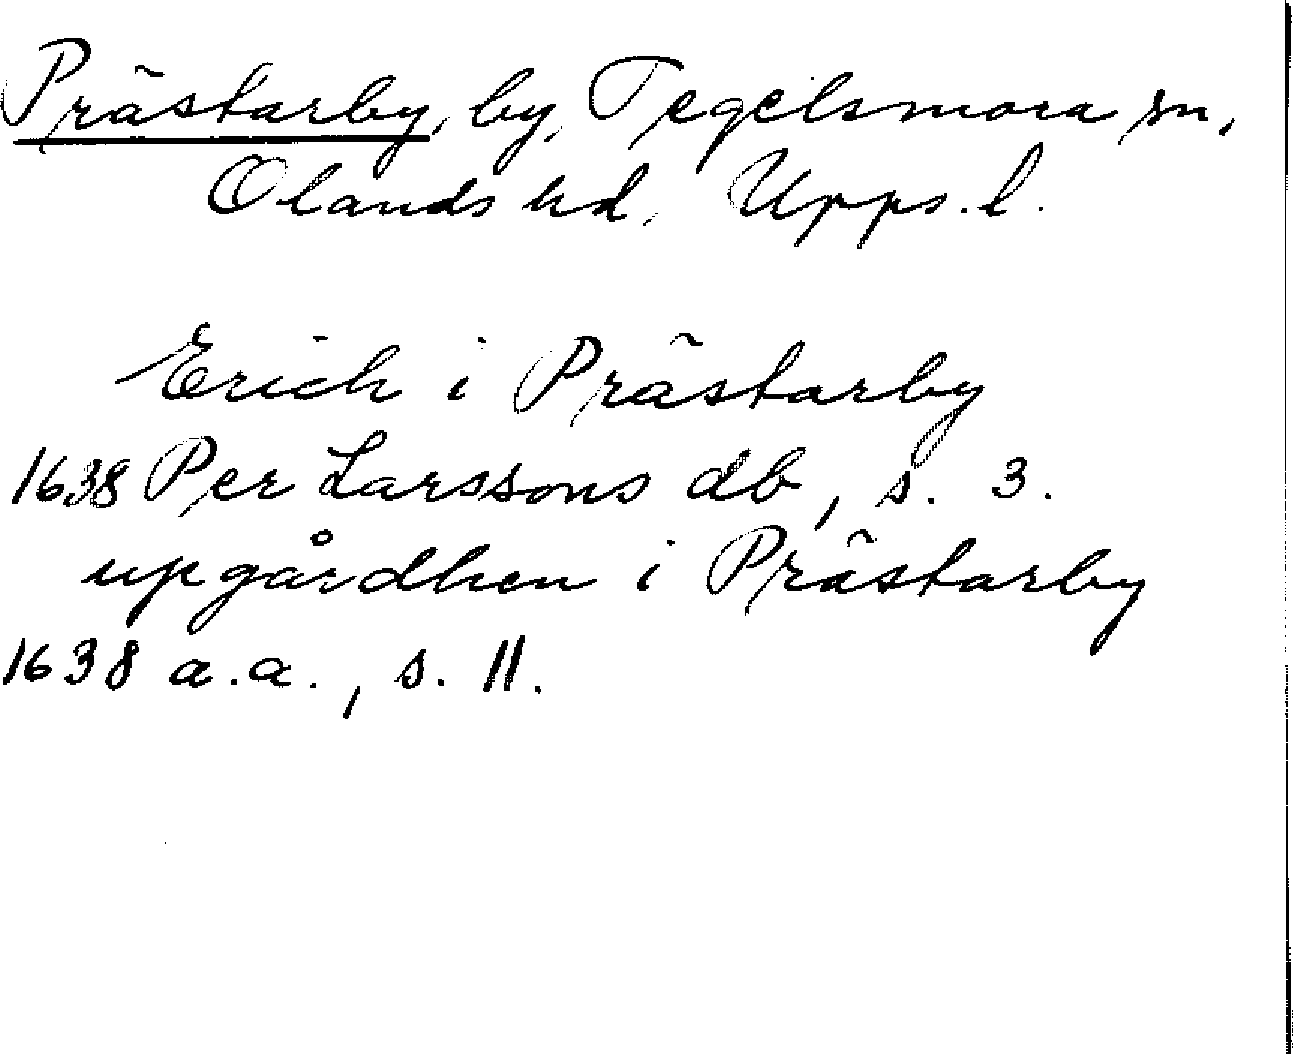 Prästarby, by, Tegelsmora sn,
Olands hd, Upps. l.
Erich i Prästarby
1638 Per Larssons db, s. 3.
upgårdhen i Prästarby
1638 a.a., s. 11.